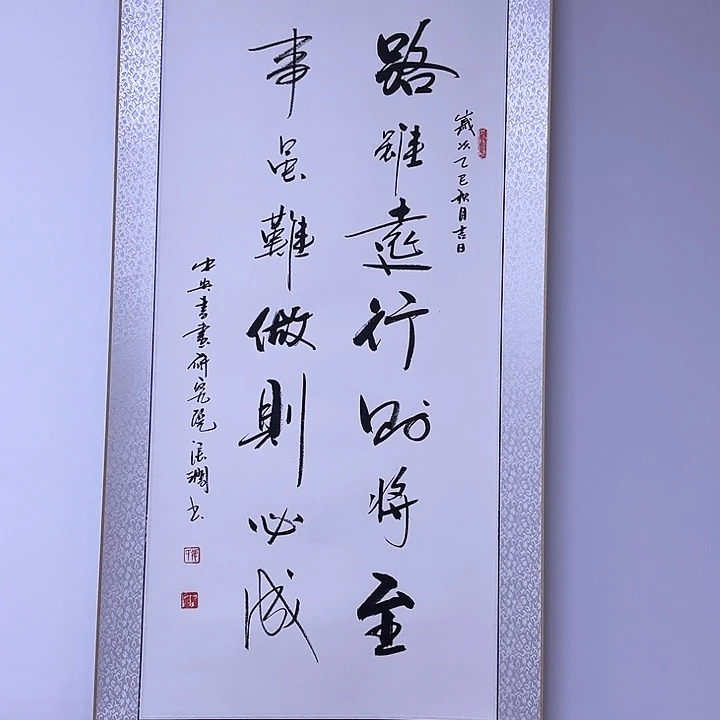 歲次乙巳秋月吉日
路雖遠行则将至
事虽難做則必成
中央書畫研究院張書